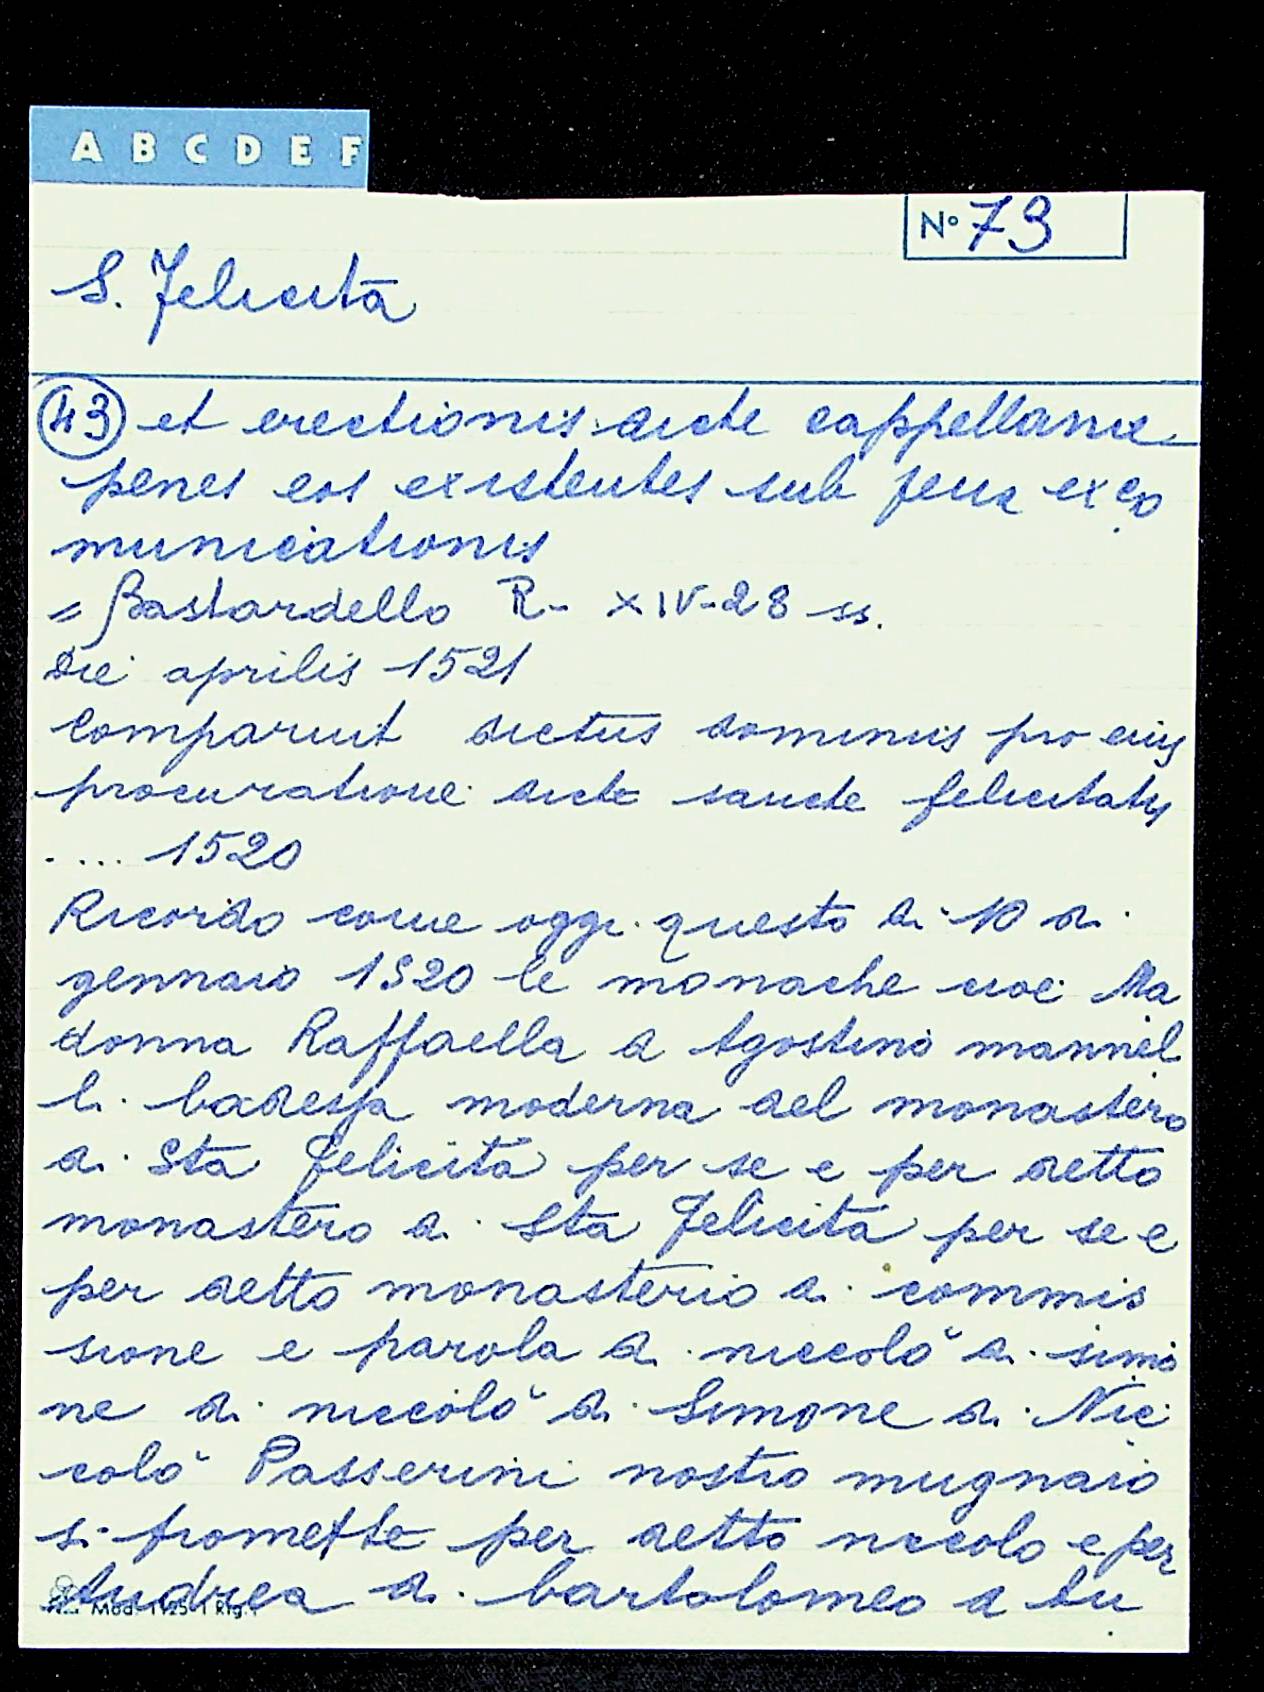 A B C D E F
N° 73
S. Felicità
43 et erectionis dicte cappellanie
penes eos existentes sub pena exco
municationis
= Bastardello R- XIV-28 ss.
Die aprilis 1521
Comparuit dictus dominus pro eius
procuratione dicte sancte felicitatis
.... 1520
Ricordo come oggi questo di 10 di
gennaio 1520 le monache cioè Ma
donna Raffaella d Agostino mannel
li badessa moderna del monastero
di Sta Felicità per se e per detto
monastero di Sta Felicità per se e
per detto monasterio di commis
sione e parola di niccolò di simo
ne di niccolò di Simone di Nic
colò Passerini nostro mugnaio
si promette per detto niccolo e per
Andrea di bartolomeo d tu